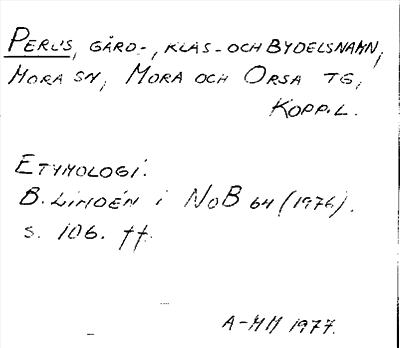 PERUS, GÅRD-, KLAS- OCH BYDELSNAMN,
MORA SN, MORA OCH ORSA TG,
KOPP.L.
ETYMOLOGI:
B. LINDÉN I NoB 64 (1976).
S. 106. ff.
A-MH 1977.